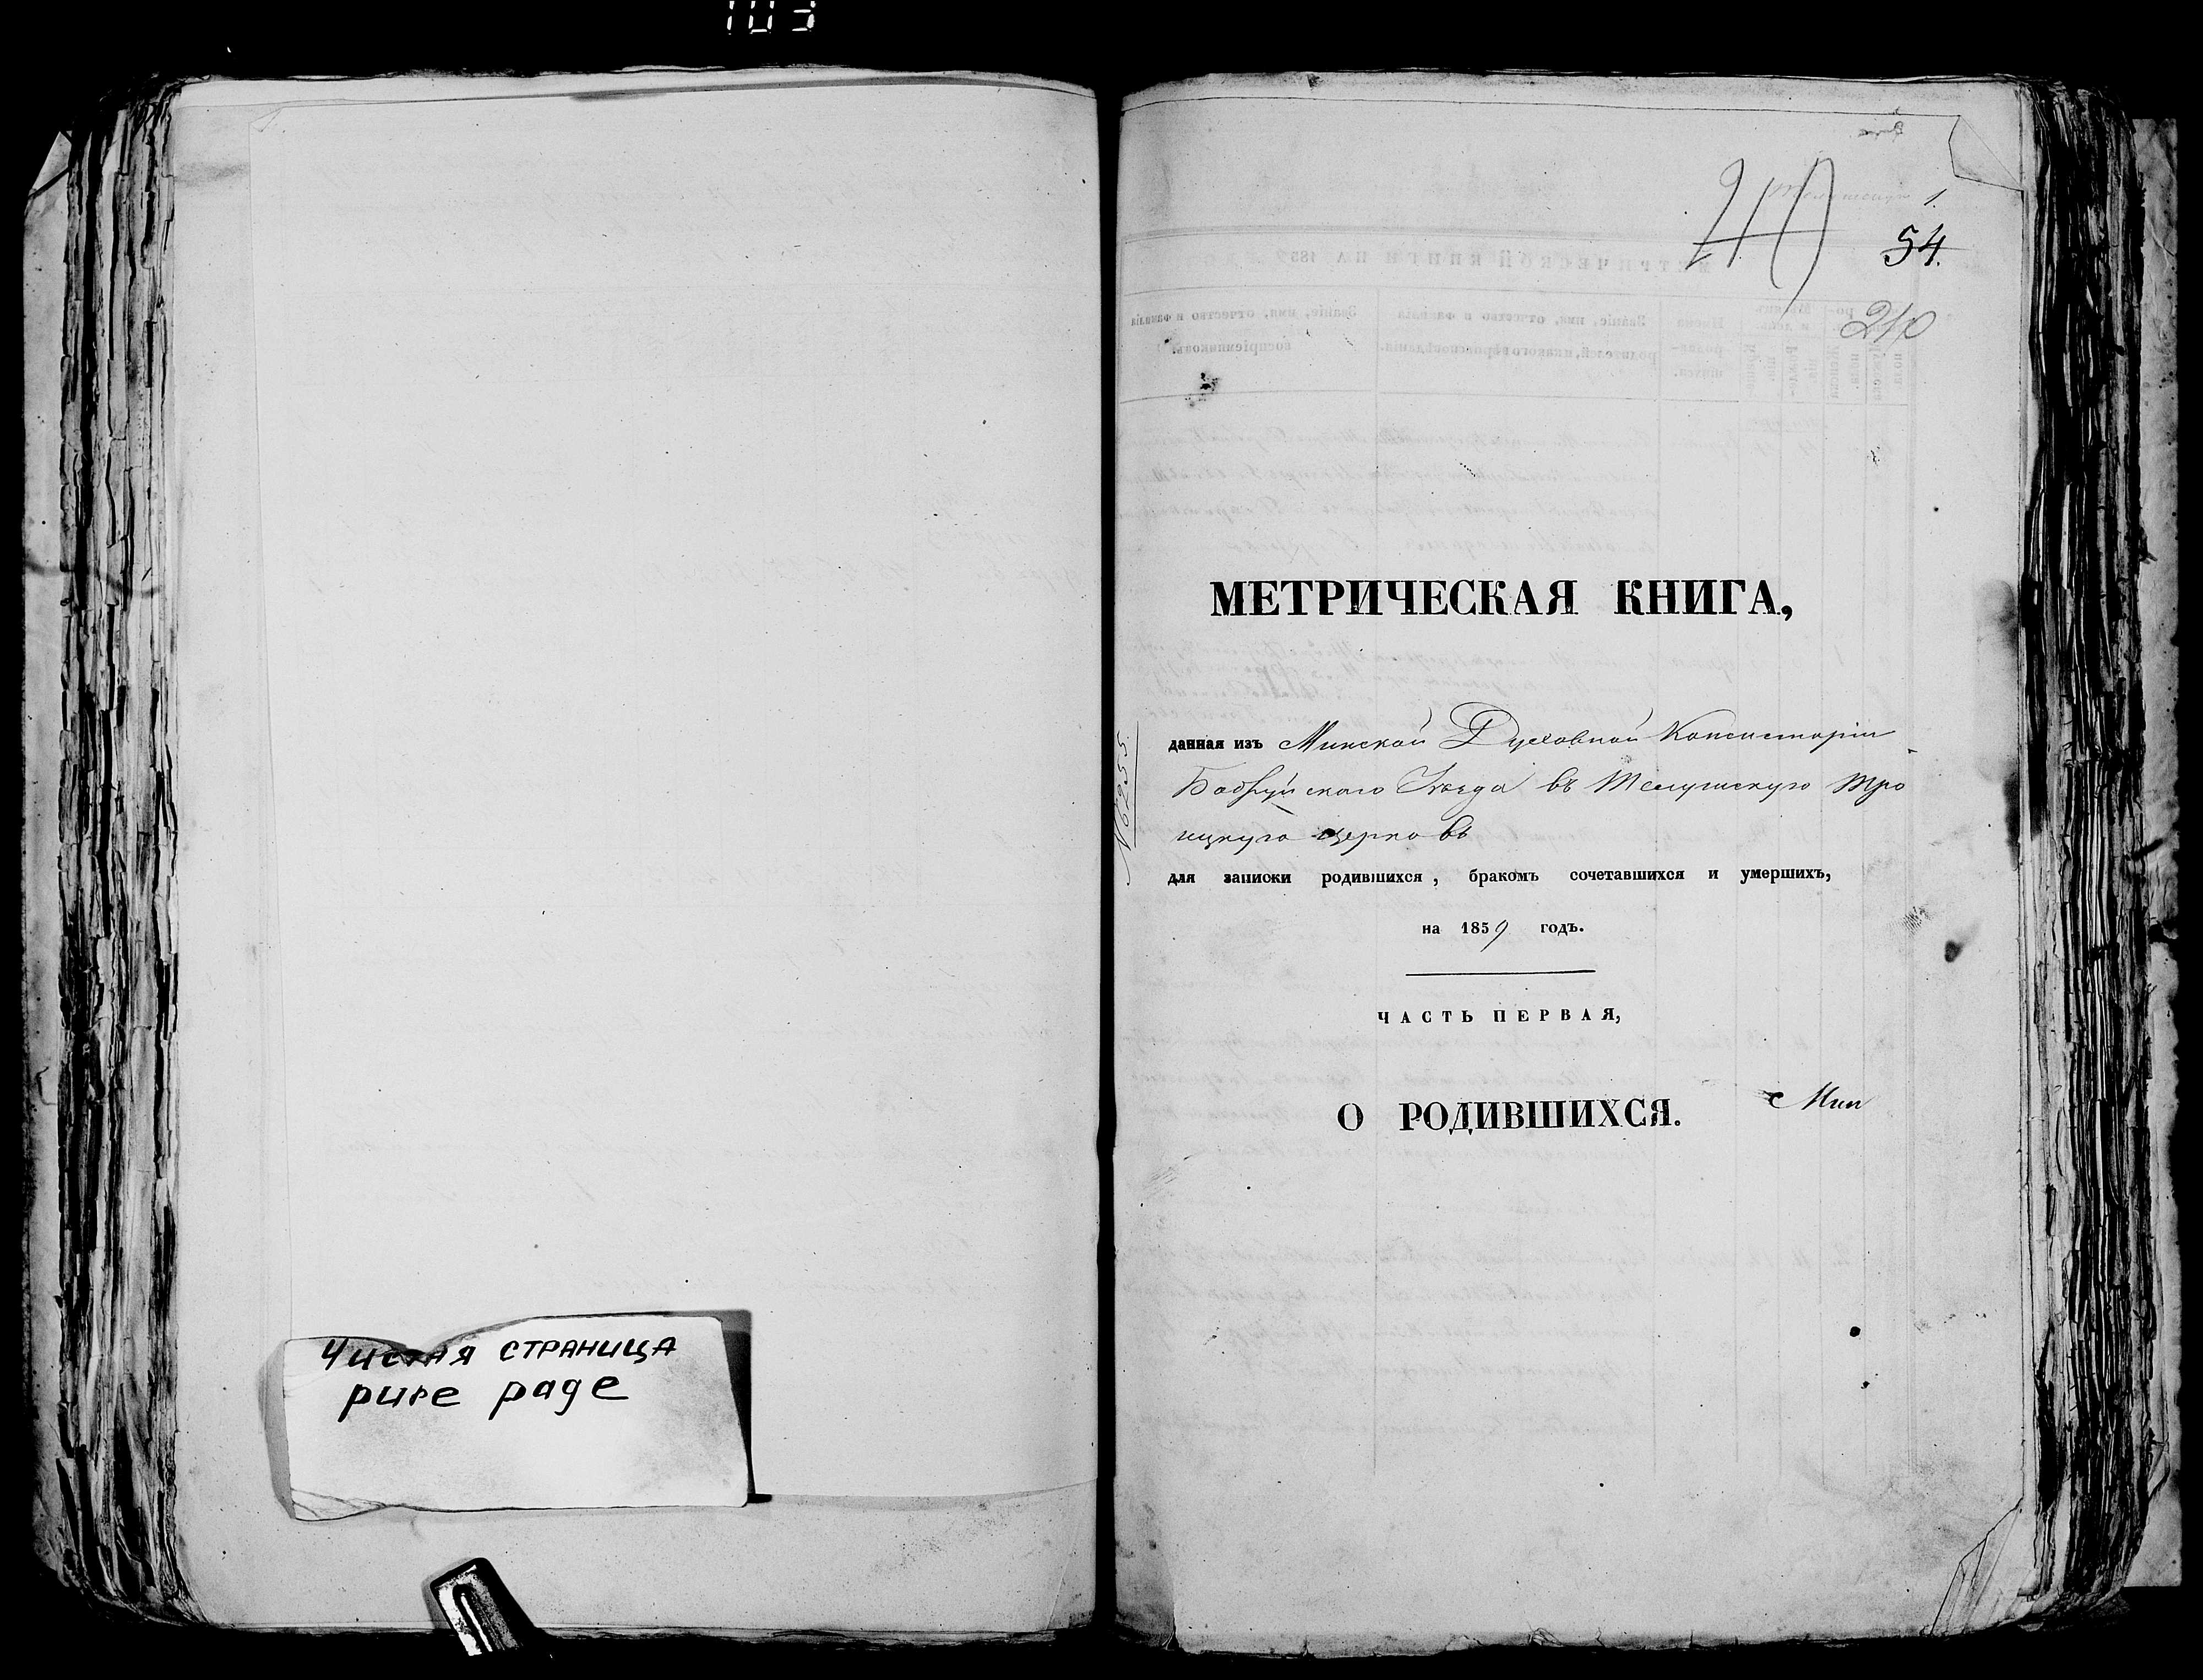 103
Чистая страница
pure page
1.
54.
210
МЕТРИЧЕСКАЯ КНИГА,
№ 6255
данная изъ Минской Духовной Консисторіи
Бобруйскаго Уѣзда въ Телушскую Тро
ицкую церковь
для записки родившихся, бракомъ сочетавшихся и умершихъ,
на 1859 годъ.
ЧАСТЬ ПЕРВАЯ,
О РОДИВШИХСЯ.